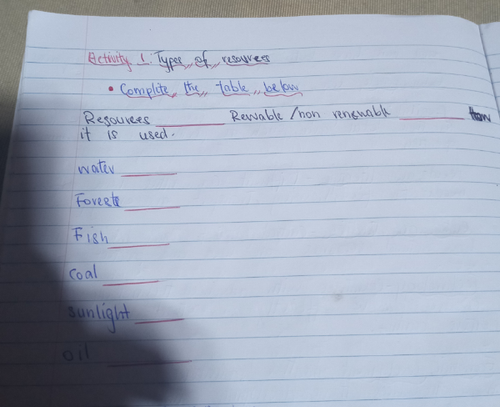 Activity 1. Types of resources
• Complete the table below
Resources ________ Rewable / non renewable ________ How
it is used.
water ________
Forests ________
Fish ________
coal ________
sunlight ________
oil ________